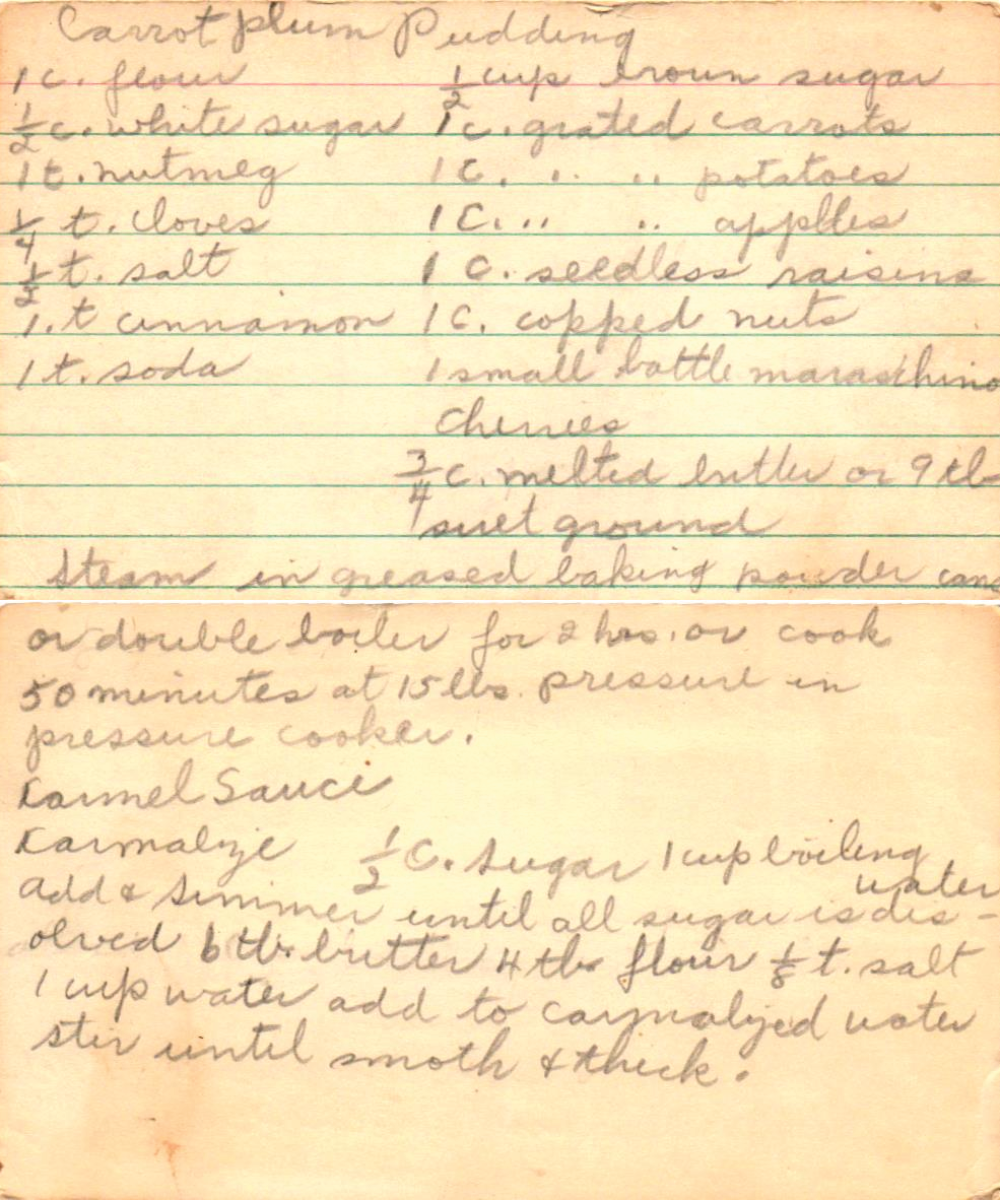 Carrot plum Pudding
1 c. flour ½ cup broun sugar
½ c. white sugar 1 c. grated carrots
1 t. nutmeg 1 C. .. .. potatoes
¼ t. cloves 1 C. .. .. applles
½ t. salt 1 C. seedless raisins
1. t cinnamon 1 C. copped nuts
1 t. soda 1 small bottle maraschino
Cherries
¾ c. melted butter or 9 tb
suet ground
Steam in greased baking powder cans
or double boiler for 2 hrs. or cook
50 minutes at 15 lbs. pressure in
pressure cooker.
Karmel Sauce
Karmalize ½ C. sugar 1 cup boiling
water
add & simmer until all sugar is dis-
olved 6 tb. butter 4 tb. flour ⅛ t. salt
1 cup water add to carmalized water
stir until smoth & thick.